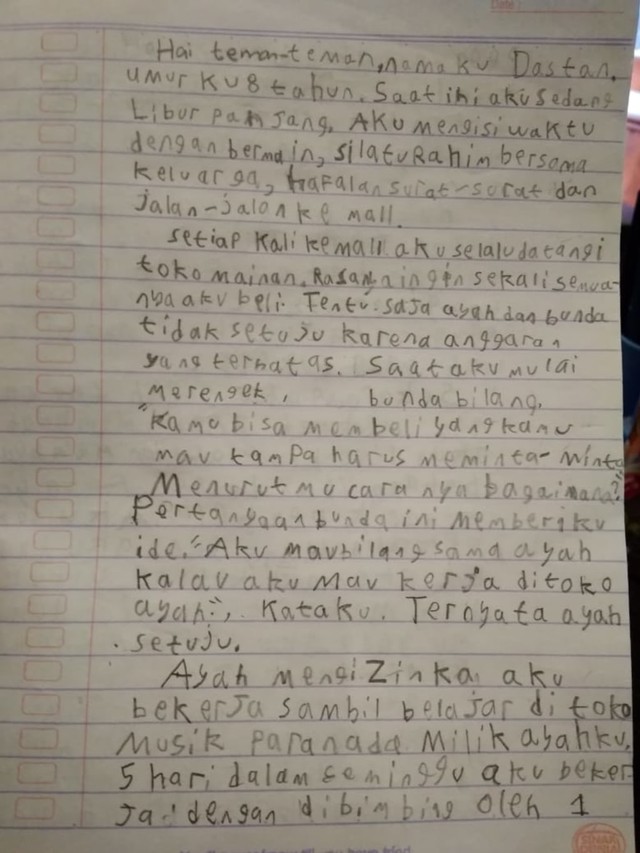 Date:
Hai teman-teman, namaku Dastan,
umur ku 8 tahun. Saat ini aku sedang
Libur panjang. Aku mengisi waktu
dengan bermain, silatuRahim bersama
keluarga, hafalan surat-surat dan
jalan-jalan ke mall.
setiap kali ke mall aku selalu datangi
toko mainan. Rasanya ingin sekali semua-
nya aku beli. Tentu saja ayah dan bunda
tidak setuju karena anggaran
yang terbatas. Saat aku mulai
merengek, bunda bilang,
"Kamu bisa membeli yang kamu
mau tampa harus meminta-minta
Menurut mu cara nya bagaimana?"
Pertanyaan bunda ini memberiku
ide. "Aku mau bilang sama ayah
kalau aku mau kerja di toko
ayah", kataku. Ternyata ayah
setuju.
Ayah mengiZinka aku
bekerja sambil belajar di toko
Musik paranada Milik ayahku.
5 hari dalam seminggu aku beker
ja dengan dibimbing oleh 1